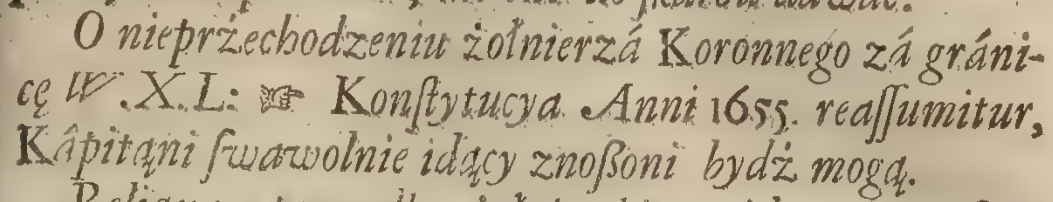 O nieprżechodzeniu żołnierzá Koronnego zá gráni-
cę W.X.L: ☞ Konſtytucya Anni 1655. reaſſumitur,
Kápitąni ſwawolnie idący znoßoni bydż mogą.